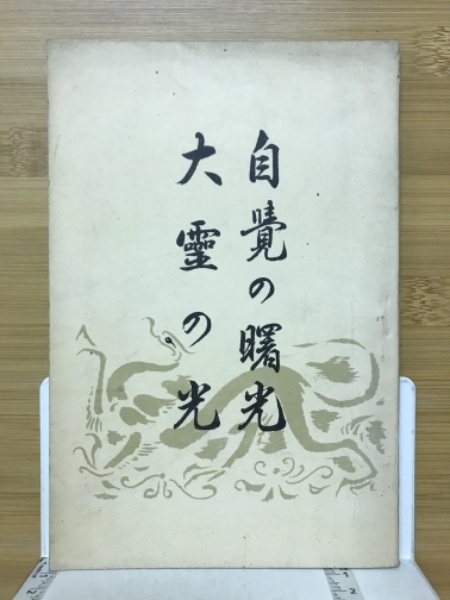 自覺の曙光
大靈の光